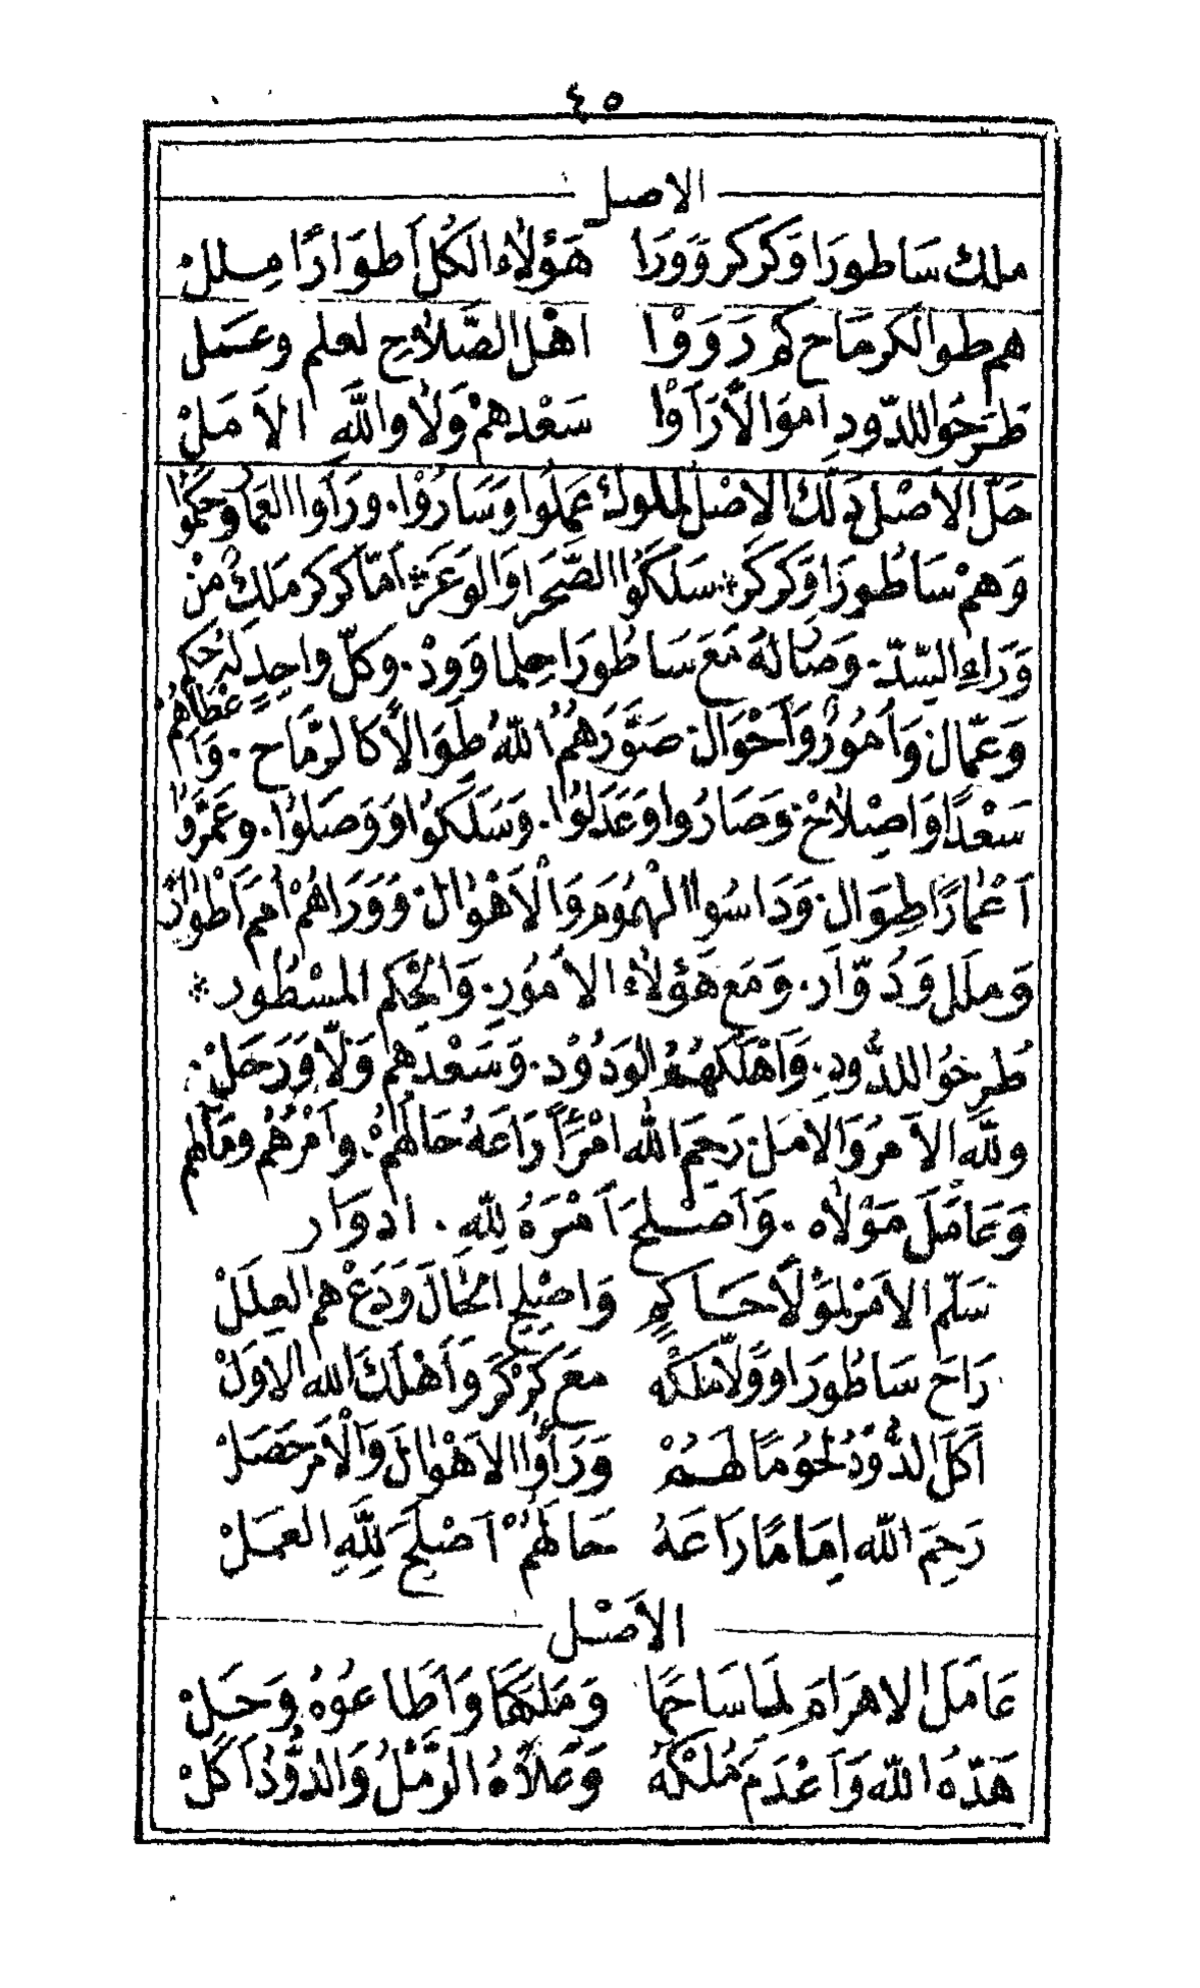 ٤٥
الاصل
ملك ساطورا وكركر وورا هَؤلاء الكل أطوارًا ملل
هم طوالٌ كرماح كم رووا اهل الصّلاح لعلم وعمل
طرحوا للدّود امّوا لا رأوا سَعْدهمْ ولا والله الأمل
حلّ الأصْل ذلك الاصْل لملوك عملوا وسَارُوْا. ورأوا العمار وحكموا
وهمْ سَاطُورَا وكركر. سلكوا الصّحرا والوعر. أمّا كركر ملك منْ
ورَاءِ السّدّ. وصار له مع ساطُورَا حلما وودْ. وكلّ واحِد له حكم
وعمّال وأمُورٌ وأحْوال. صَوَّرَهُمُ اللهُ طوالاً كالرّماح. وأمّ عطاهمُ
سَعْدًا واصِلاحْ. وصَارُوا وعَدَلوُا. وسَلكوُا ووصلوُا. وعَمّروُا
أعْمارًا طِوَال. ودَاسُوا الْهمُوم والْأهْوال. وورَاهُمْ أمم أطْوارْ
وملل ودُوّار. ومَع هَؤلاء الأمُور. والحْكم المسْطُور
طرحُوا للدُّودِ. وأهْلكهُمُ الودُوْد. وسَعْدهم ولّا ورحَلْ
ولله الأمرُ والأمل. رحِم الله امْرًأ رَاعَهُ حَالهُمْ. وأمْرُهُم ومآلهم
وعَامَل مَوْلاه. وأصْلح أمْرَهُ للهِ. ادوار
سَلّم الأمْر لمَوْلاً حَاكمٍ وأصْلِح الحْال ودَعْ هم العِلَلْ
رَاحَ سَاطُورَا وولاّ ملكُه مع كرْكر وأهْلك الله الأوَلْ
أكل الدُّودُ لحُومًا لهمُ ورأوْا الأهْوال والْأمر حصَلْ
رَحِمَ الله امَامًا رَاعَهُ حَالهُمْ أصْلح للهِ العمَلْ
الأصْل
عَامَل الاهرام لما سَاحها وملكها وأطاعوُهُ وحَلْ
هَدّهُ الله وأعْدَم مُلْكهُ وعَلاهُ الرّمْلُ والدُّودُ أكلْ